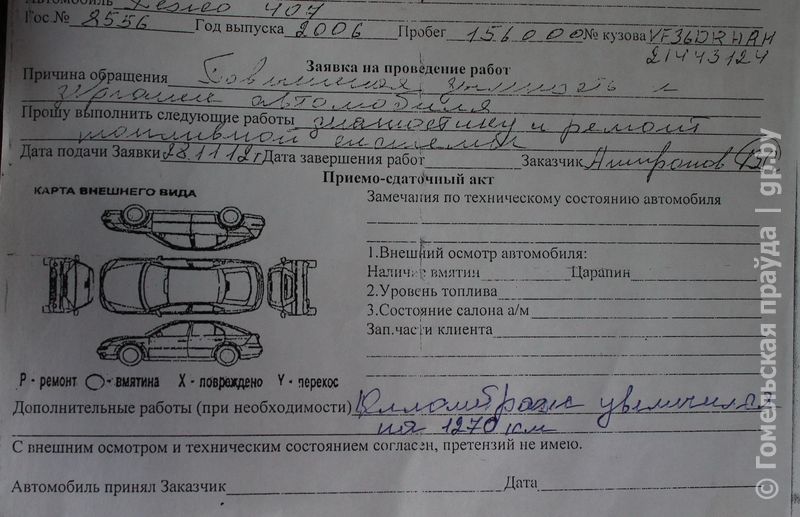 Автомобиль Пежо 407
Гос № 8556 Год выпуска 2006 Пробег 156000 № кузова VF36DRHAH
21443124
Заявка на проведение работ
Причина обращения
автомобиля
Прошу выполнить следующие работы диагностику и ремонт
топливной системы
Дата подачи Заявки 28.11.12г Дата завершения работ Заказчик
Приемо-сдаточный акт
КАРТА ВНЕШНЕГО ВИДА
Замечания по техническому состоянию автомобиля
1.Внешний осмотр автомобиля:
Наличие вмятин Царапин
2.Уровень топлива
3.Состояние салона а/м
Зап.части клиента
Р - ремонт - вмятина Х - повреждено Y - перекос
Дополнительные работы (при необходимости) Километраж увеличился
на 1270 км
С внешним осмотром и техническим состоянием согласен, претензий не имею.
Автомобиль принял Заказчик Дата
© Гомельская праўда | gp.by